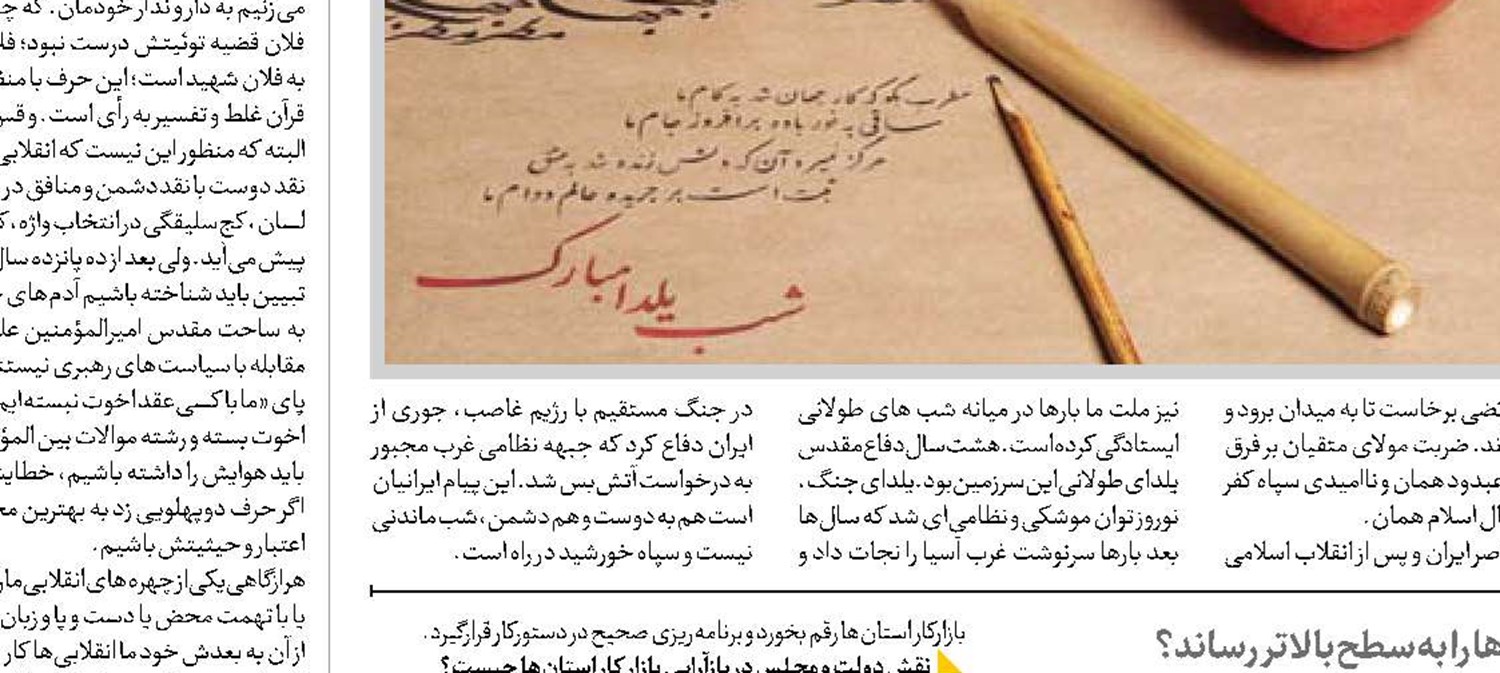 مطرب بگو که کار جهان شد به کام ما
ساقی به نور باده برافروز جام ما
هرگز نمیرد آن که دلش زنده شد به عشق
ثبت است بر جریده عالم دوام ما
شب یلدا مبارک
نیز ملت ما بارها در میانه شب های طولانی
ایستادگی کرده است. هشت سال دفاع مقدس
یلدای طولانی این سرزمین بود. یلدای جنگ،
نوروز توان موشکی و نظامی‌ای شد که سال‌ها
بعد بارها سرنوشت غرب آسیا را نجات داد و
در جنگ مستقیم با رژیم غاصب، جوری از
ایران دفاع کرد که جبهه نظامی غرب مجبور
به درخواست آتش‌بس شد. این پیام ایرانیان
است هم به دوست و هم دشمن، شب ماندنی
نیست و سپاه خورشید در راه است.
برخاست تا به میدان برود و
ضربت مولای متقیان بر فرق
عبدود همان و ناامیدی سپاه کفر
اسلام همان.
ایران و پس از انقلاب اسلامی
ها را به سطح بالاتر رساند؟
بازار کار استان ها رقم بخورد و برنامه ریزی صحیح در دستور کار قرار گیرد.
نقش دولت و مجلس در بازآرایی بازار کار استان ها چیست؟
می‌زنیم به دار و ندار خودمان. که
فلان قضیه توئیتش درست نبود؛
به فلان شهید است؛ این حرف با
قرآن غلط و تفسیر به رأی است.
البته که منظور این نیست که انقلابی
نقد دوست با نقد دشمن و منافق در
لسان، کج سلیقگی در انتخاب واژه،
پیش می‌آید. ولی بعد از ده پانزده سال
تبیین باید شناخته باشیم آدم‌های
به ساحت مقدس امیرالمؤمنین
مقابله با سیاست های رهبری
پای «ما با کسی عقد اخوت نبسته‌ایم
اخوت بسته و رشته موالات بین
باید هوایش را داشته باشیم،
اگر حرف دوپهلویی زد به بهترین
اعتبار و حیثیتش باشیم.
هرازگاهی یکی از چهره های انقلابی
یا با تهمت محض یا دست و پا و زبان
از آن به بعدش خود ما انقلابی ها کار